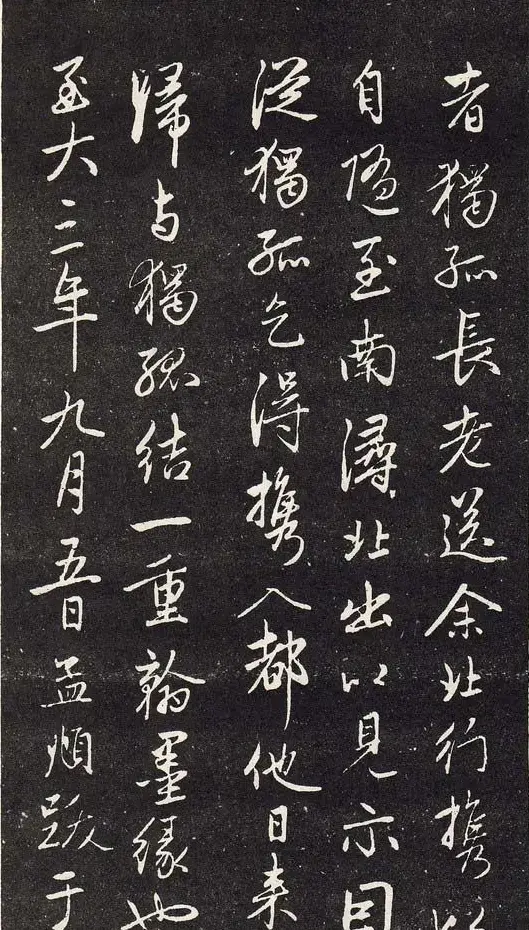 者獨孤長老送余北行携以
自随至南潯北出以見示因
從獨孤乞得携入都他日来
歸与獨孤結一重翰墨緣也
至大三年九月五日孟頫跋于